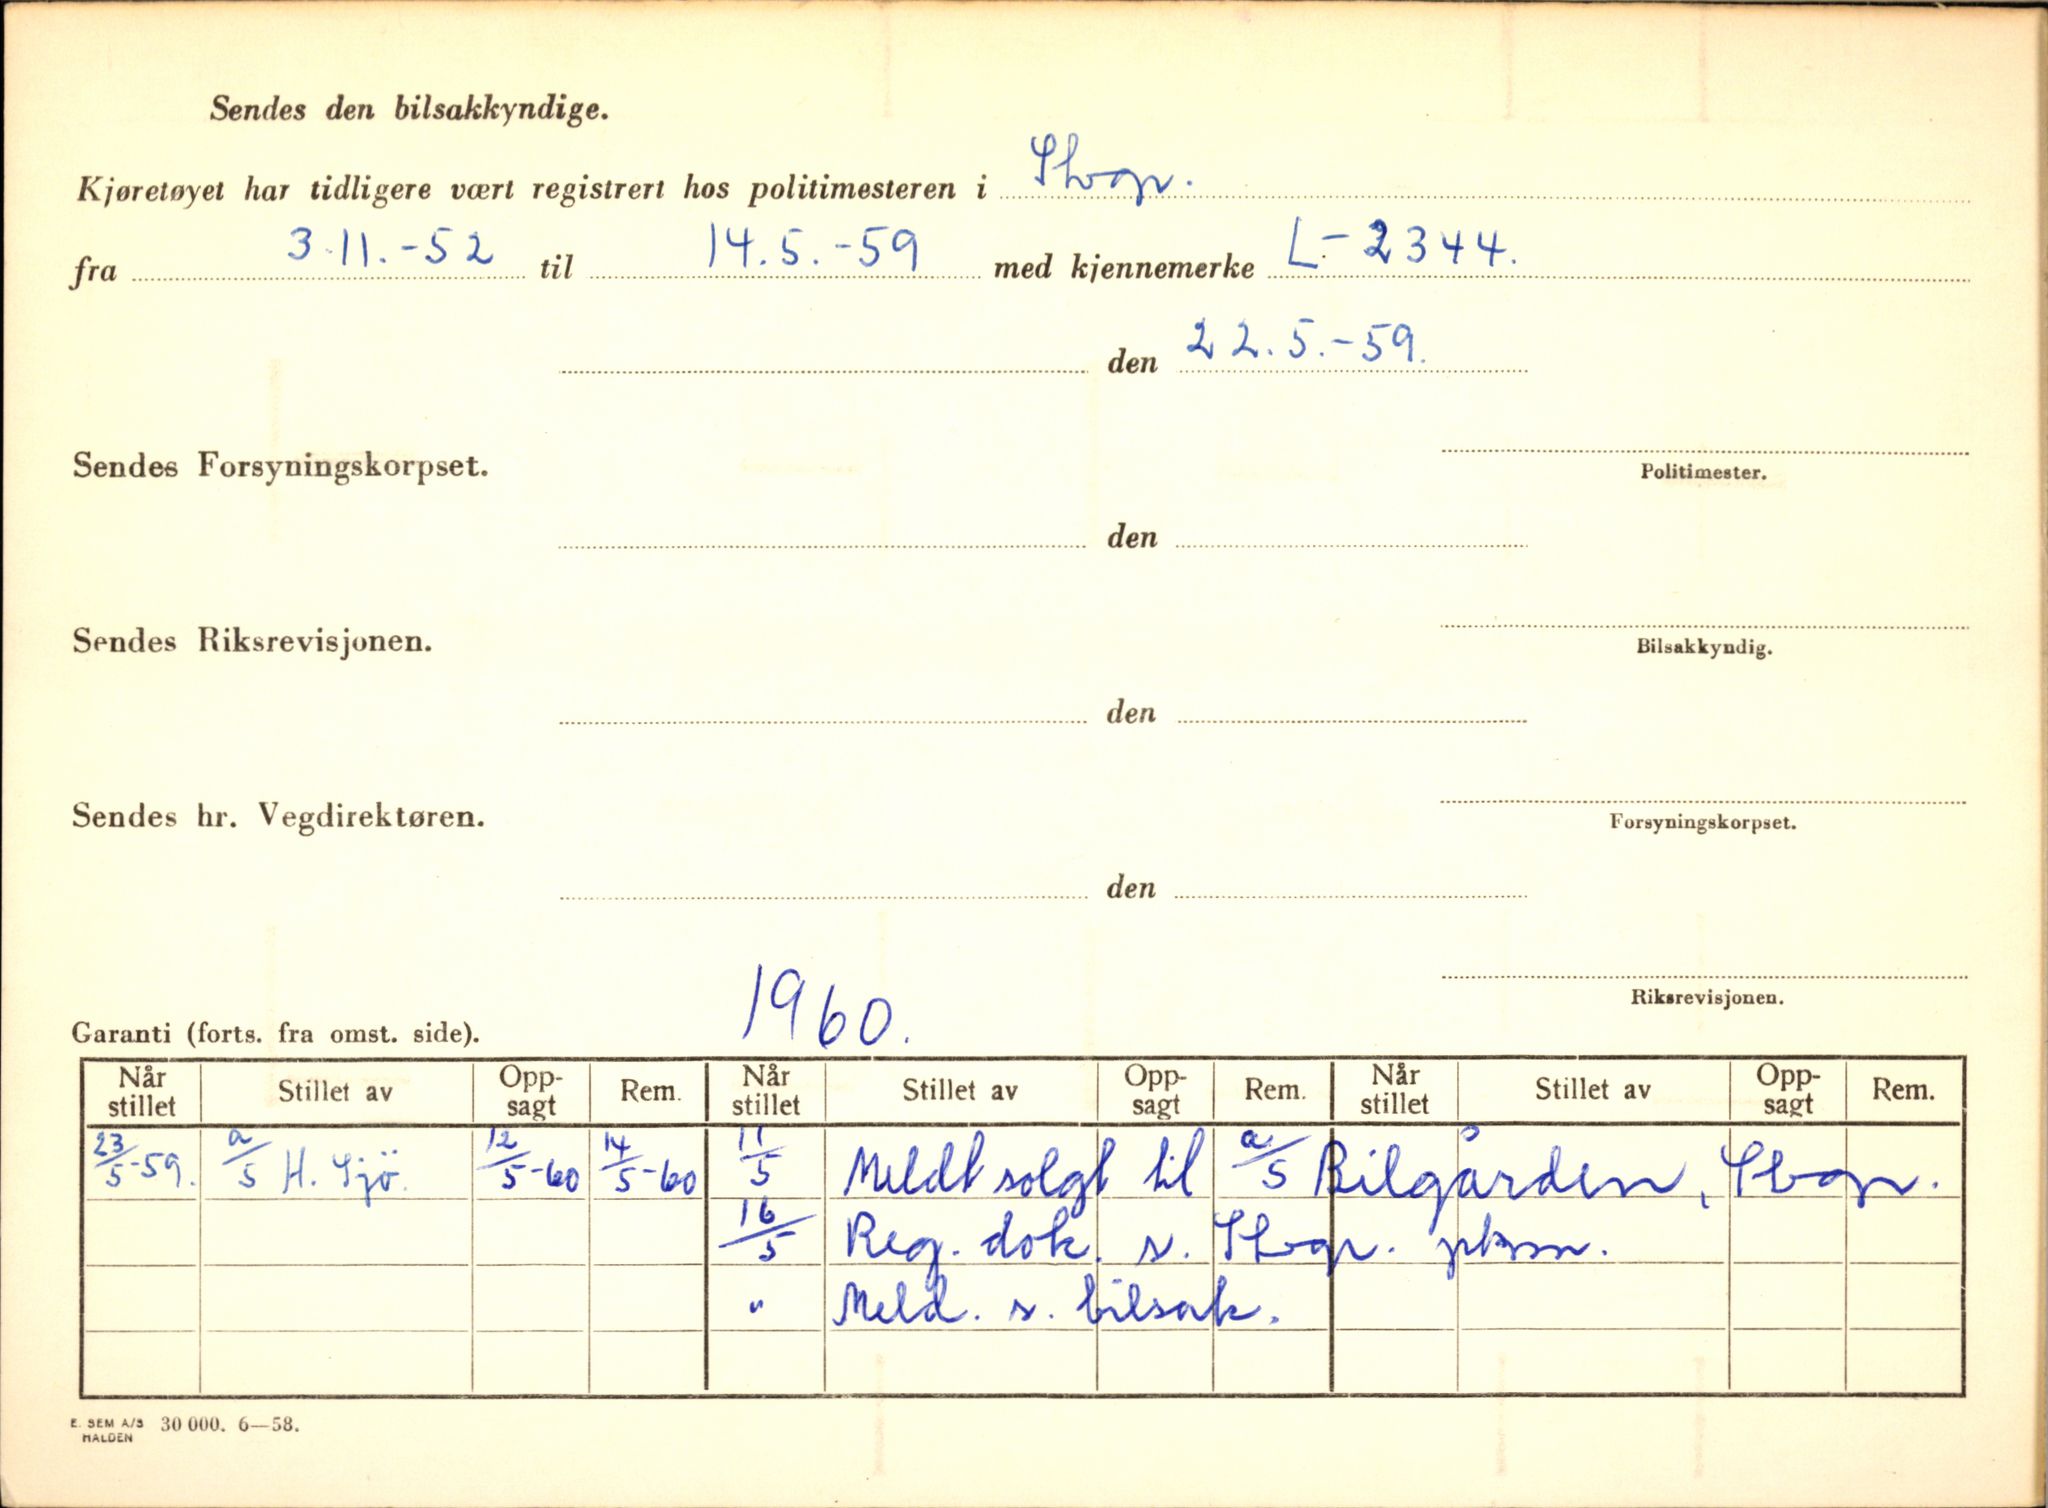 Sendes den bilsakkyndige.
Kjøretøyet har tidligere vært registrert hos politimesteren i Stvgr.
fra 3.11.-52 til 14.5.-59 med kjennemerke L-2344.
den 22.5.-59.
Sendes Forsyningskorpset.
Politimester.
den
Sendes Riksrevisjonen.
Bilsakkyndig.
den
Sendes hr. Vegdirektøren.
Forsyningskorpset.
den
Riksrevisjonen.
Garanti (forts. fra omst. side). 1960.
Når stillet Stillet av Opp-sagt Rem. Når stillet Stillet av Opp-sagt Rem. Når stillet Stillet av Opp-sagt Rem.
23/5-59. a/s H. Sjö. 12/5-60 14/5-60 11/5 Meldt solgt til a/s Bilgården, Stvgr.
16/5 Reg. dok. s. Stvgr. pkm.
" Meld. s. bilsak.
E. SEM A/S HALDEN 30 000. 6—58.